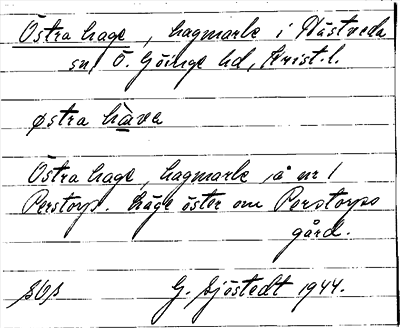 Östra hage, hagmark i Hästveda
sn, Ö. Göinge hd, Krist. l.
østra hava
Östra hage, hagmark å nr 1
Perstorp. Läge öster om Perstorps
gård.
G. Sjöstedt 1944.